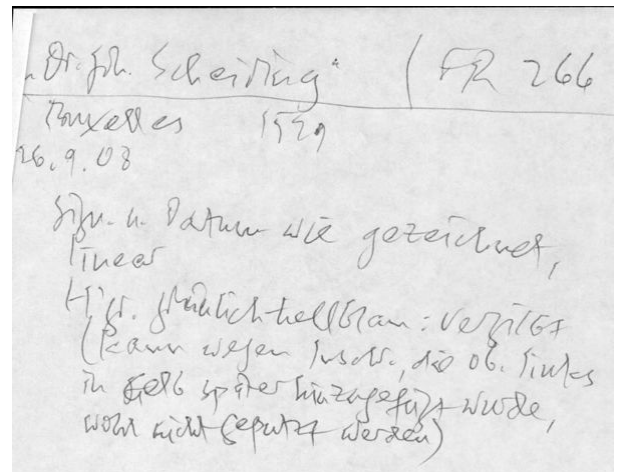 „Dr. Joh. Scheiding“ (FR 266
Bruxelles 1529
26.9.08
Sign. u. Datum wie gezeichnet,
linear
H'gr. grünlich-hellblau: vergilbt
(kann wegen Inschr., die ob. links
in gelb später hinzugefügt wurde,
wohl nicht geputzt werden)